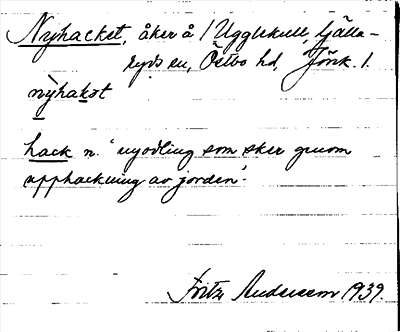 Nyhacket, åker å 1 Ugglekull, Källe-
ryds sn, Östbo hd, Jönk. l.
nỳhakət
hack n. 'nyodling som sker genom
upphackning av jorden'.
Fritz Andersson 1939.